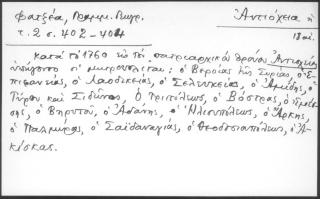 Φατζέα, Γραμμ. Γεωγρ.
Ἀντιόχεια ἡ
τ. 2 σ. 402-404
18 αἰ.
κατὰ τὸ 1760 εἰς τὸν πατριαρχικὸν θρόνον Ἀντιοχείας
ὑπήγοντο οἱ μητροπολῖται: ὁ Βεροίας τῆς Συρίας, ὁ Ἐ-
πιφανείας, ὁ Λαοδικείας, ὁ Σελευκείας, ὁ Ἀμίδης, ὁ
Τύρου καὶ Σιδῶνος, ὁ Τριπόλεως, ὁ Βόστρας, ὁ Ἐμέσ-
σης, ὁ Βηρυτοῦ, ὁ Ἀδάνης, ὁ Ἡλιουπόλεως, ὁ Ἄρκης,
ὁ Παλμύρας, ὁ Σαϊδαναγίας, ὁ Θεοδοσιουπόλεως, ὁ Ἀ-
κίσκας.